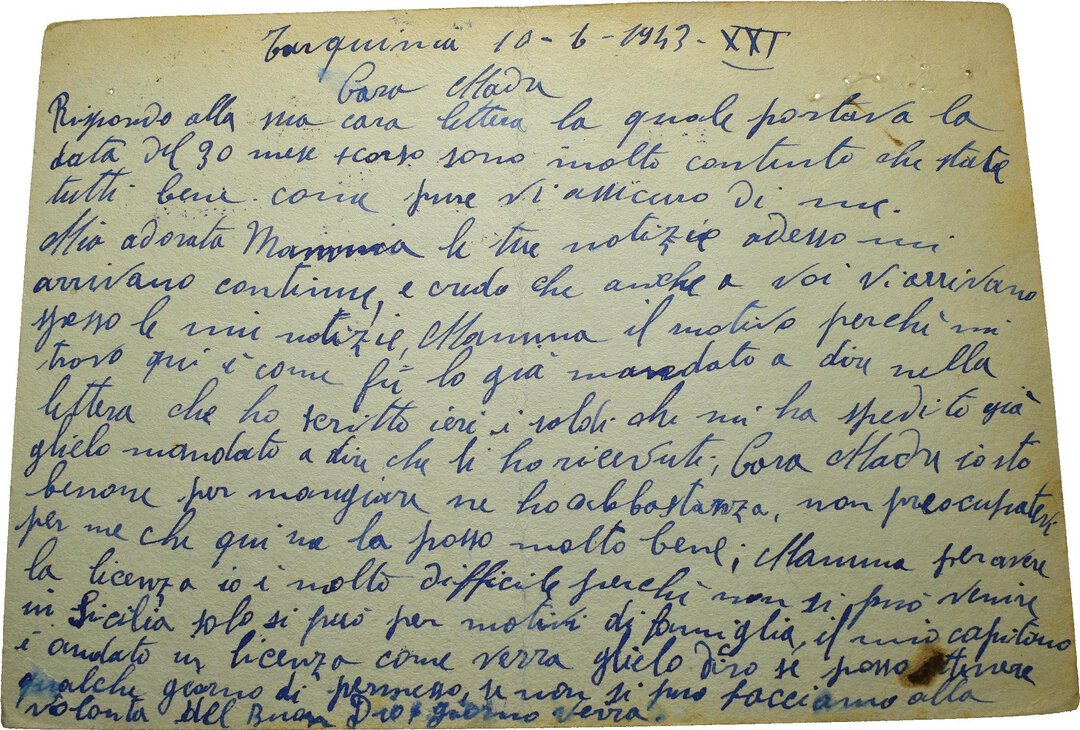 Tarquinia 10-6-1943-XXI
Cara Madre
Rispondo alla sua cara lettera la quale portava la
data del 30 mese scorso sono molto contento che state
tutti bene come pure vi assicuro di me.
Mia adorata Mamma le tue notizie adesso mi
arrivano continue, e credo che anche a voi vi arrivano
spesso le mie notizie, Mamma il motivo perchè mi
trovo qui è come fù lo già mandato a dire nella
lettera che ho scritto ieri. i soldi che mi ha spedito già
glielo mandato a dire che li ho ricevuti; Cara Madre io sto
benone per mangiare ne ho abbastanza, non preocupatevi
per me che qui me la passo molto bene; Mamma per avere
la licenza io è molto difficile perchè non si può venire
in Sicilia solo si può per motivi di famiglia, il mio capitano
è andato in licenza come verra glielo diro se posso ottenere
qualche giorno di permesso, se non si può facciamo alla
volonta del Buon Dio giorno verra.